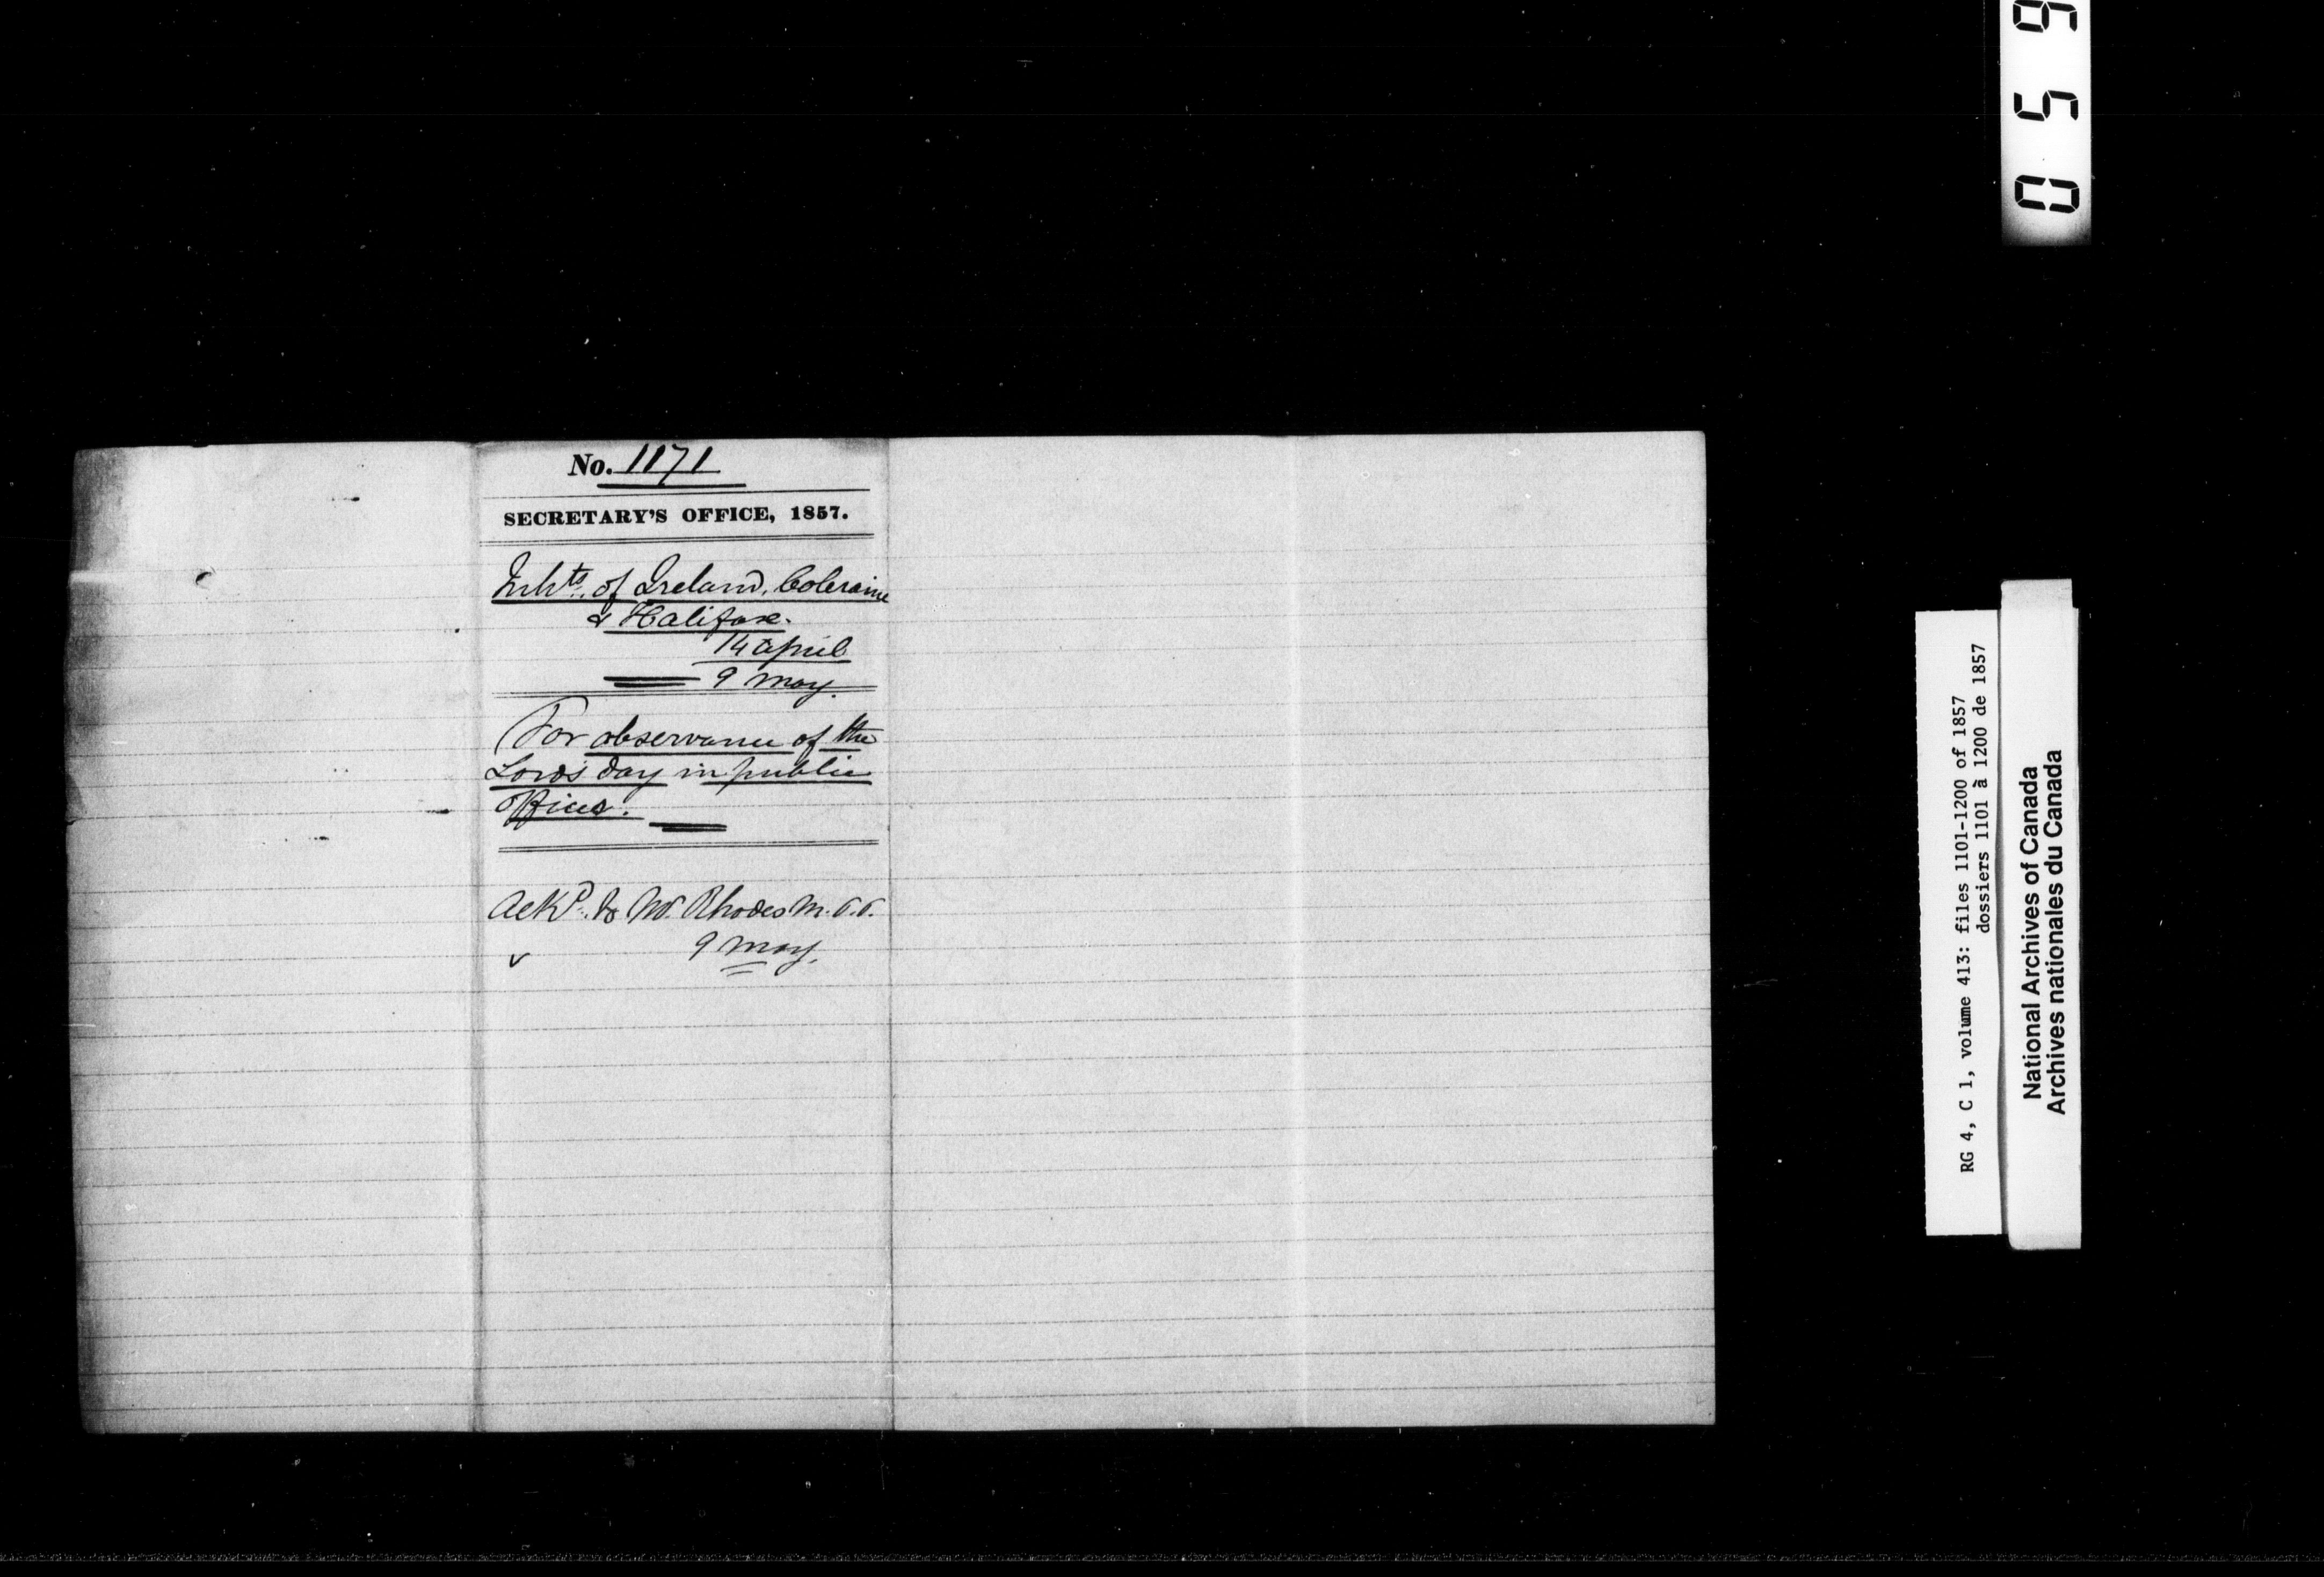 No. 1171
SECRETARY'S OFFICE, 1857.
Inhts. of Ireland, Coleraine
& Halifax.
14 April
9 May.
For observance of the
Lord's day in public
Offices.
Ackd. to W. Rhodes M.P.P.
9 May.
0 5 9
RG 4, C 1, volume 413: files 1101-1200 of 1857
dossiers 1101 à 1200 de 1857
National Archives of Canada
Archives nationales du Canada